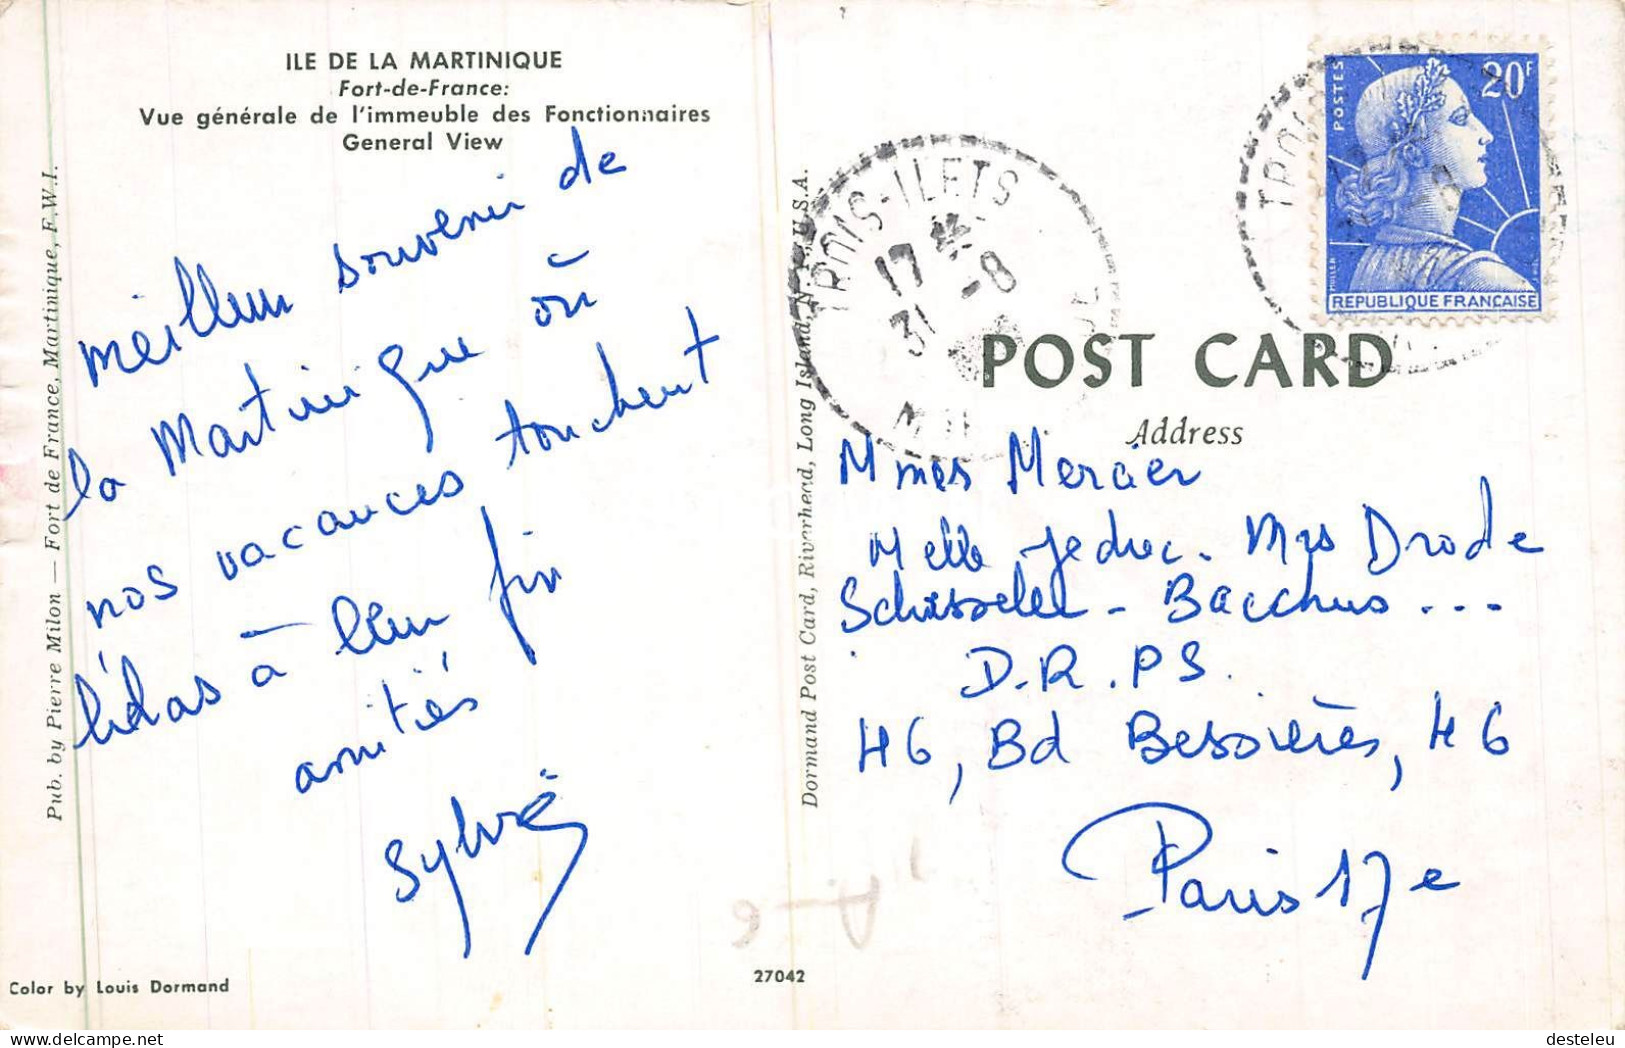 ILE DE LA MARTINIQUE
Fort-de-France:
Vue générale de l'immeuble des Fonctionnaires
General View
Pub. by Pierre Milon — Fort de France, Martinique, F.W.I.
meilleur souvenir de
la Martinique où
nos vacances touchent
hélas à leur fin
amitiés
Sylvie
Color by Louis Dormand
27042
Dormand Post Card, Riverhead, Long Island, N.Y., U.S.A.
TROIS-ILETS
17
31 -8
POSTES
20F
REPUBLIQUE FRANÇAISE
POST CARD
Address
Mmes Mercier
Melle Jedrec - Mrs Drode
- Bacchus ...
D.R.P.S.
46, Bd Bessières, 46
Paris 17e
desteleu